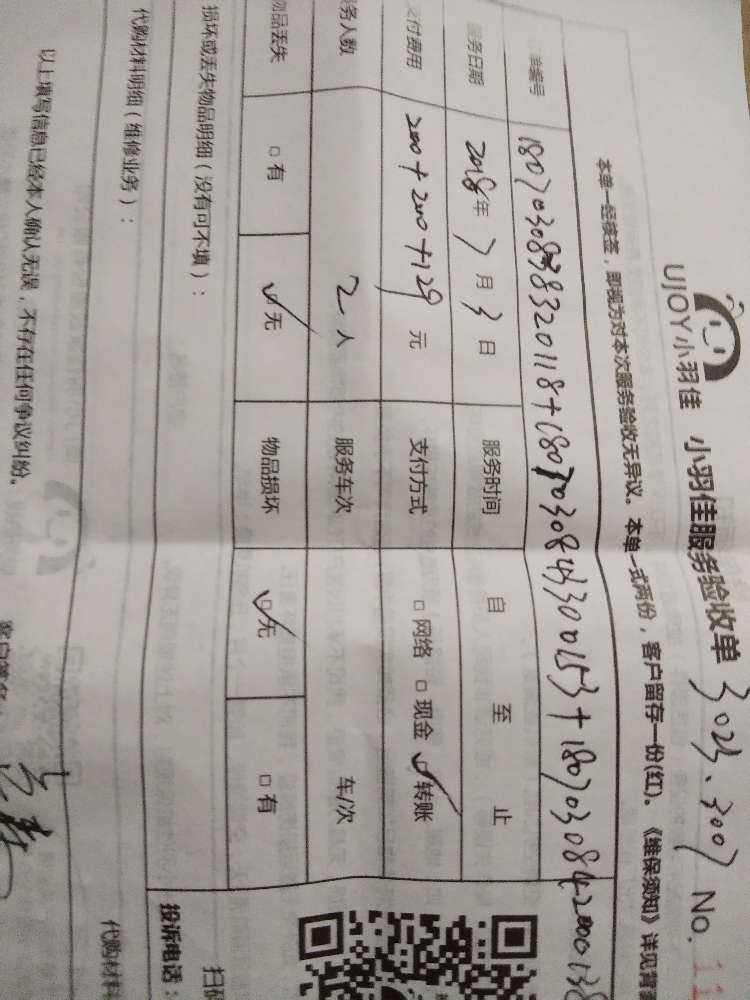 UJOY小羽佳 小羽佳服务验收单 3023、3007 No. 11
本单一经接签，即视为对本次服务验收无异议。本单一式两份，客户留存一份(红)。《维保须知》详见背
单编号
服务日期 2018年7月3日 服务时间 自 至 止
支付费用 200+200+129 元 支付方式 □网络 □现金 ☑转账
务人数 2人 服务车次 车/次
物品丢失 □有 ☑无 物品损坏 ☑无 □有
损坏或丢失物品明细（没有可不填）：
投诉电话：
扫码
代购材料明细（维修业务）：
代购材料
以上填写信息已经本人确认无误，不存在任何争议纠纷。
客户签名：